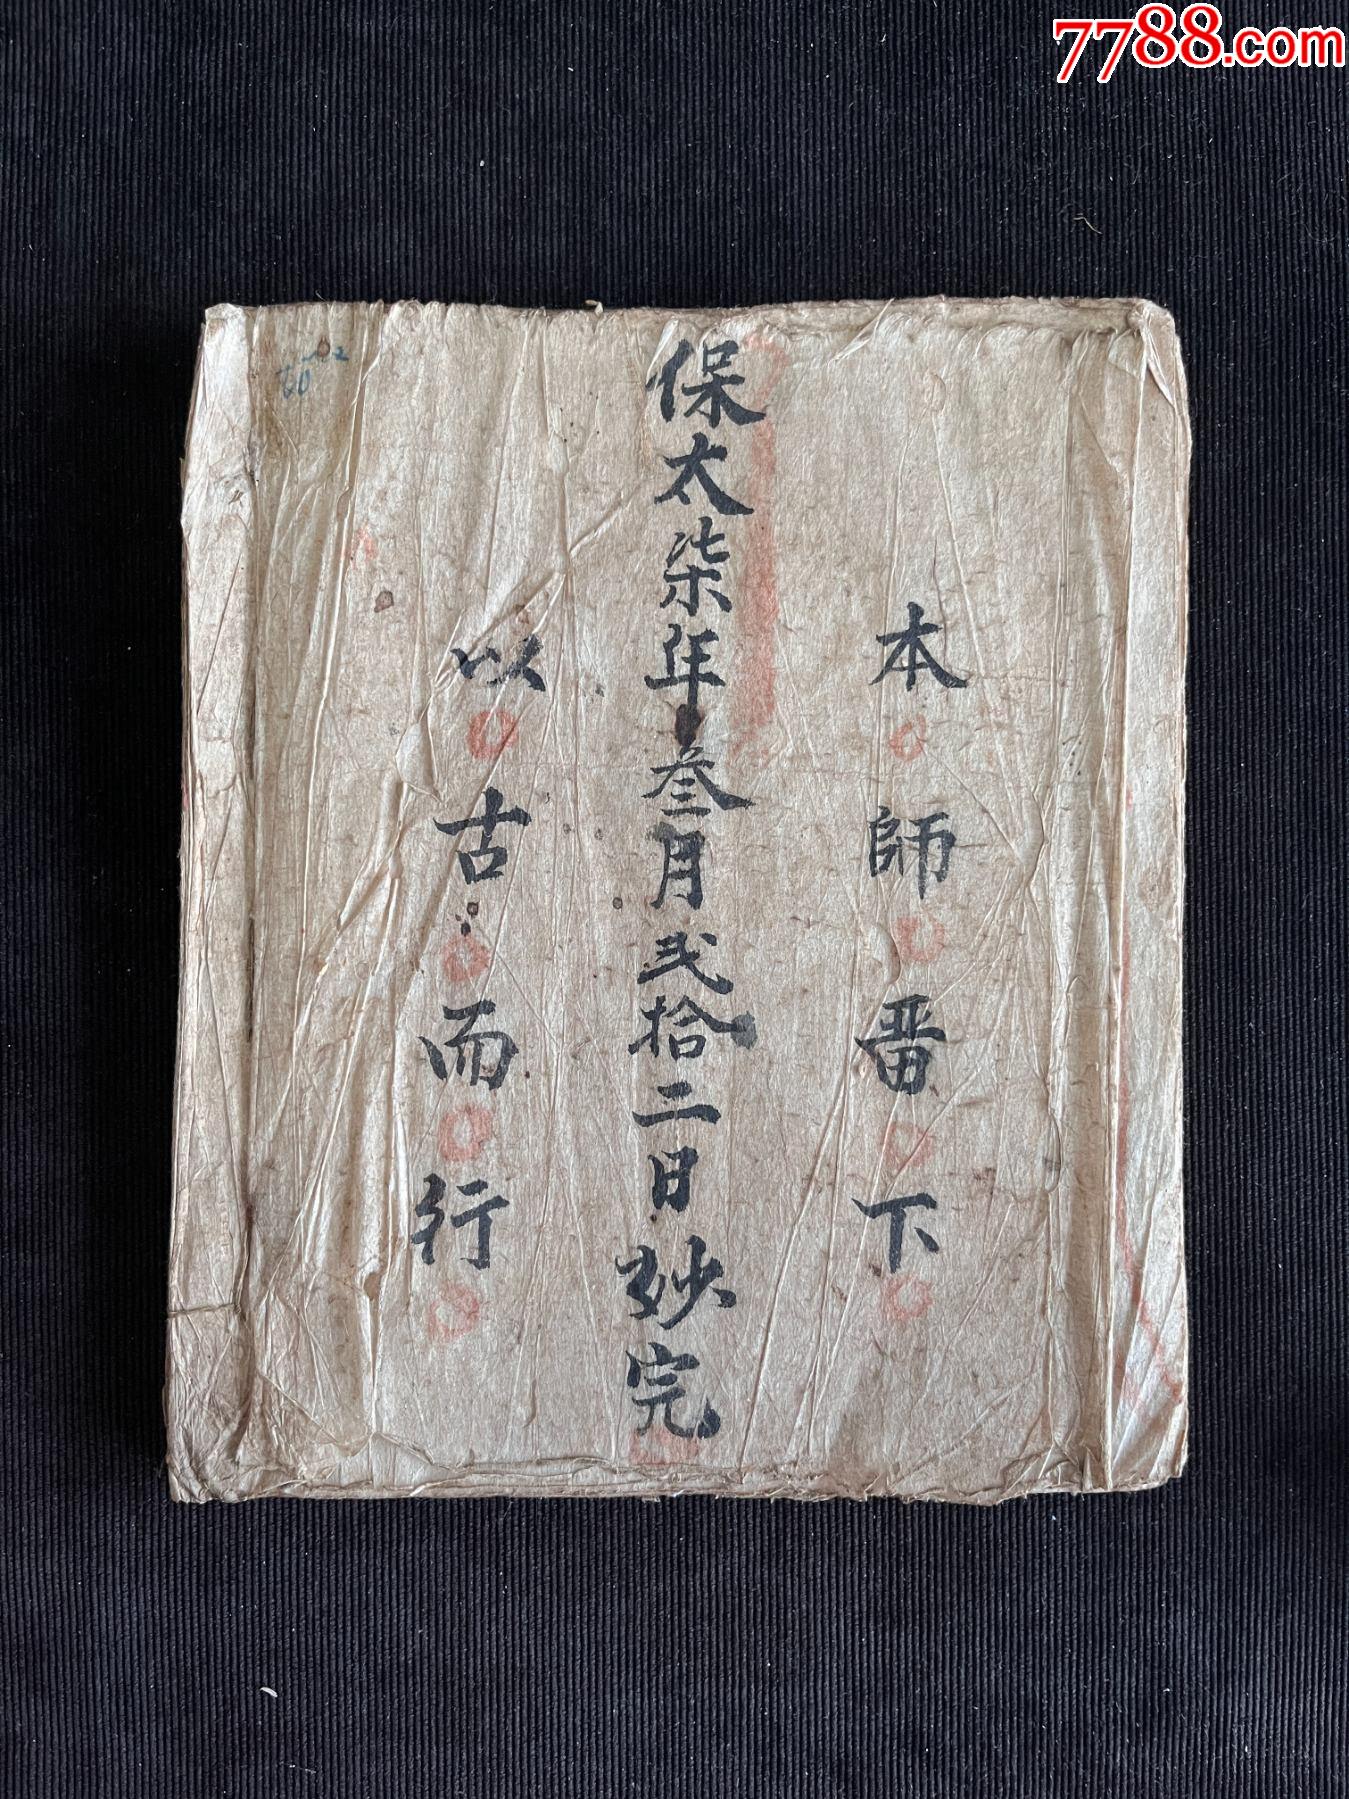 7788.com
本師畨下
保太柒年叁月弍拾二日妙完
以古而行